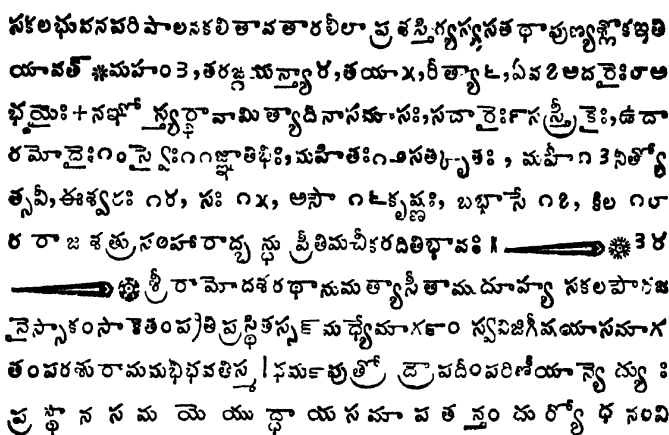 సకలభువనపరిపాలనకలితావతారలీలా ప్రశస్తిగ్యస్యసతథాపుణ్యశ్లోకఇతి
యావత్ ❋మహిం౦౩, తరఙ్గయన్త్యా౪, తయా౫, రీత్యా౬, ఏవ౭అదరైః౮అ
భృయైః+నఞో న్త్యర్థావామిత్యాదినాసమాసః, సచారైః౯సస్త్రీకైః, ఉదా
రమోదైః౧౦స్వైః౧౧జ్ఞాతిభిః, మహితః౧౨సత్కృతః, మహీ౧౩నిత్యో
త్సవీ, ఈశ్వరః ౧౪, సః ౧౫, అసౌ ౧౬కృష్ణః, బభాసే ౧౭, కిల ౧౮
ర రాజ శత్రుసంహారాద్బన్ధు ప్రీతిమచీకరదితిభావః। ❋౩౪
❋ శ్రీ రామోదశరథానుమత్యాసీతాముదూహ్య సకలపౌరజ
నైస్సాకంసాకేతంప్రతిప్రస్థితస్సన్ మధ్యేమార్గం స్వవిజిగీషయాసమాగ
తంపరశురామమభిభవతిస్మ।ధర్మపుత్రో ద్రౌపదీంపరిణీయాన్యేద్యుః
ప్రస్థానసమయేయుద్ధాయసమాపతన్తందుర్యోధనంవి